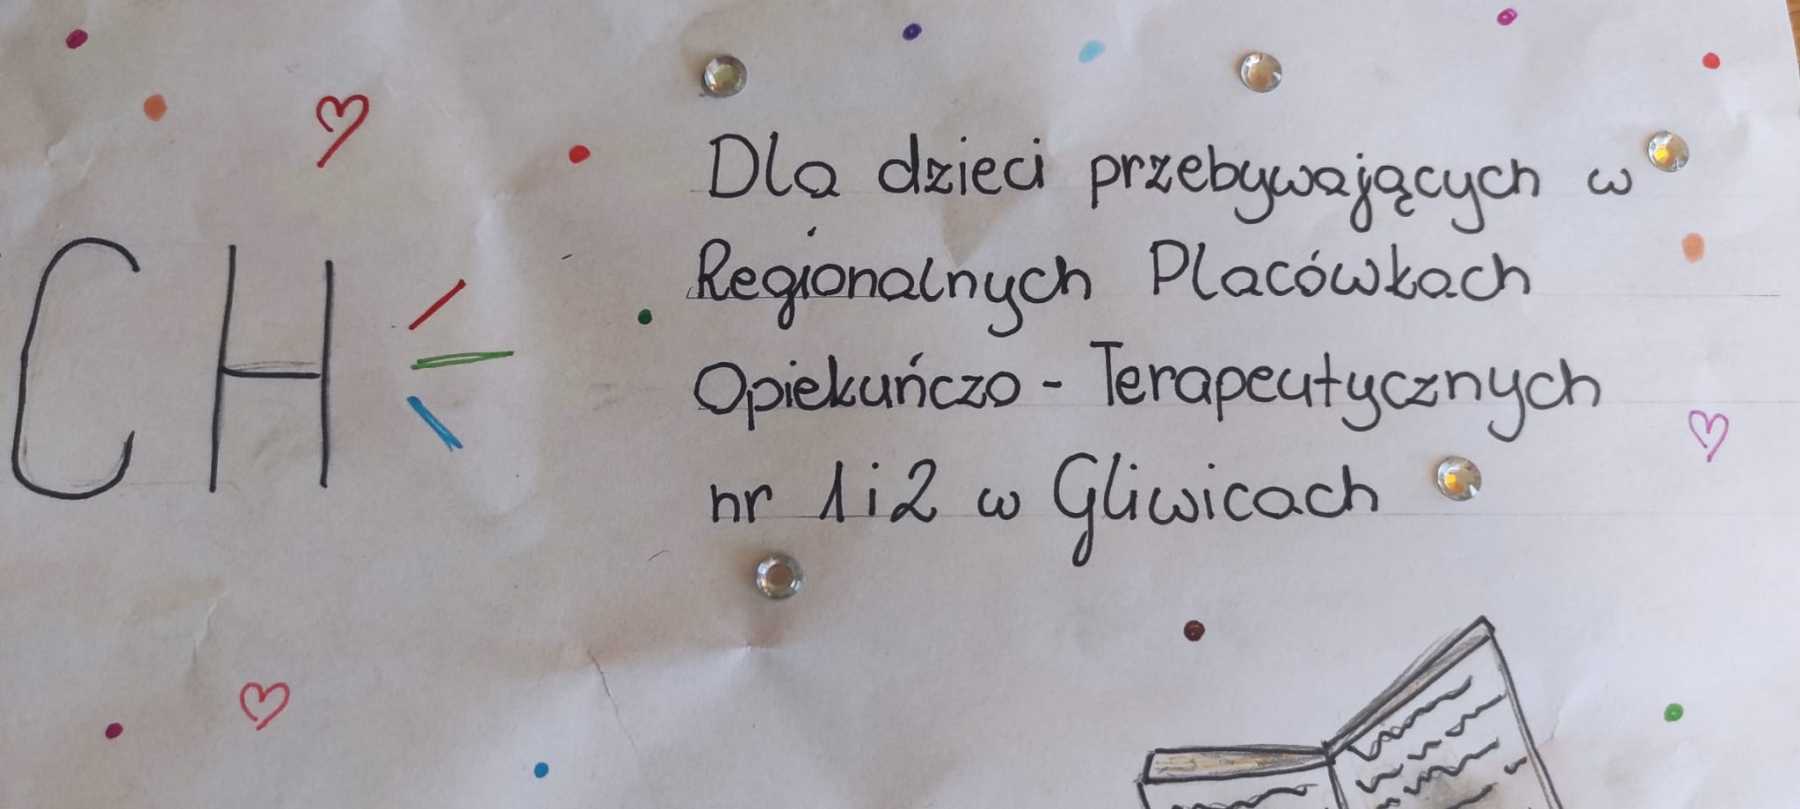 CH
Dla dzieci przebywających w
Regionalnych Placówkach
Opiekuńczo - Terapeutycznych
nr 1 i 2 w Gliwicach